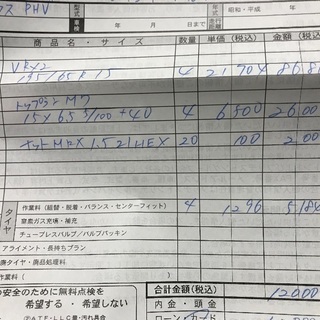 クス PHV
型式
車検 年 月 日まで
年式 昭和・平成 年
走行距離
商品名・サイズ 数量 単価(税込) 金額(税込)
VRX2
195/65R15 4 21704 868
トップラン M7
15×6.5 5/100 +40 4 6500 2600
ナット M12×1.5 21HEX 20 100 200
タイヤ
作業料(組替・脱着・バランス・センターフィット) 4 1296 5184
窒素ガス充填・補充
チューブレスバルブ/バルブパッキン
アライメント・長持ちプラン
廃タイヤ・廃品処理料
作業料( )
の安全のために無料点検を
希望する ・ 希望しない
合計金額(税込) 12000
内金・頭金
②ATF・LLC量・汚れ具合
ローン・カード